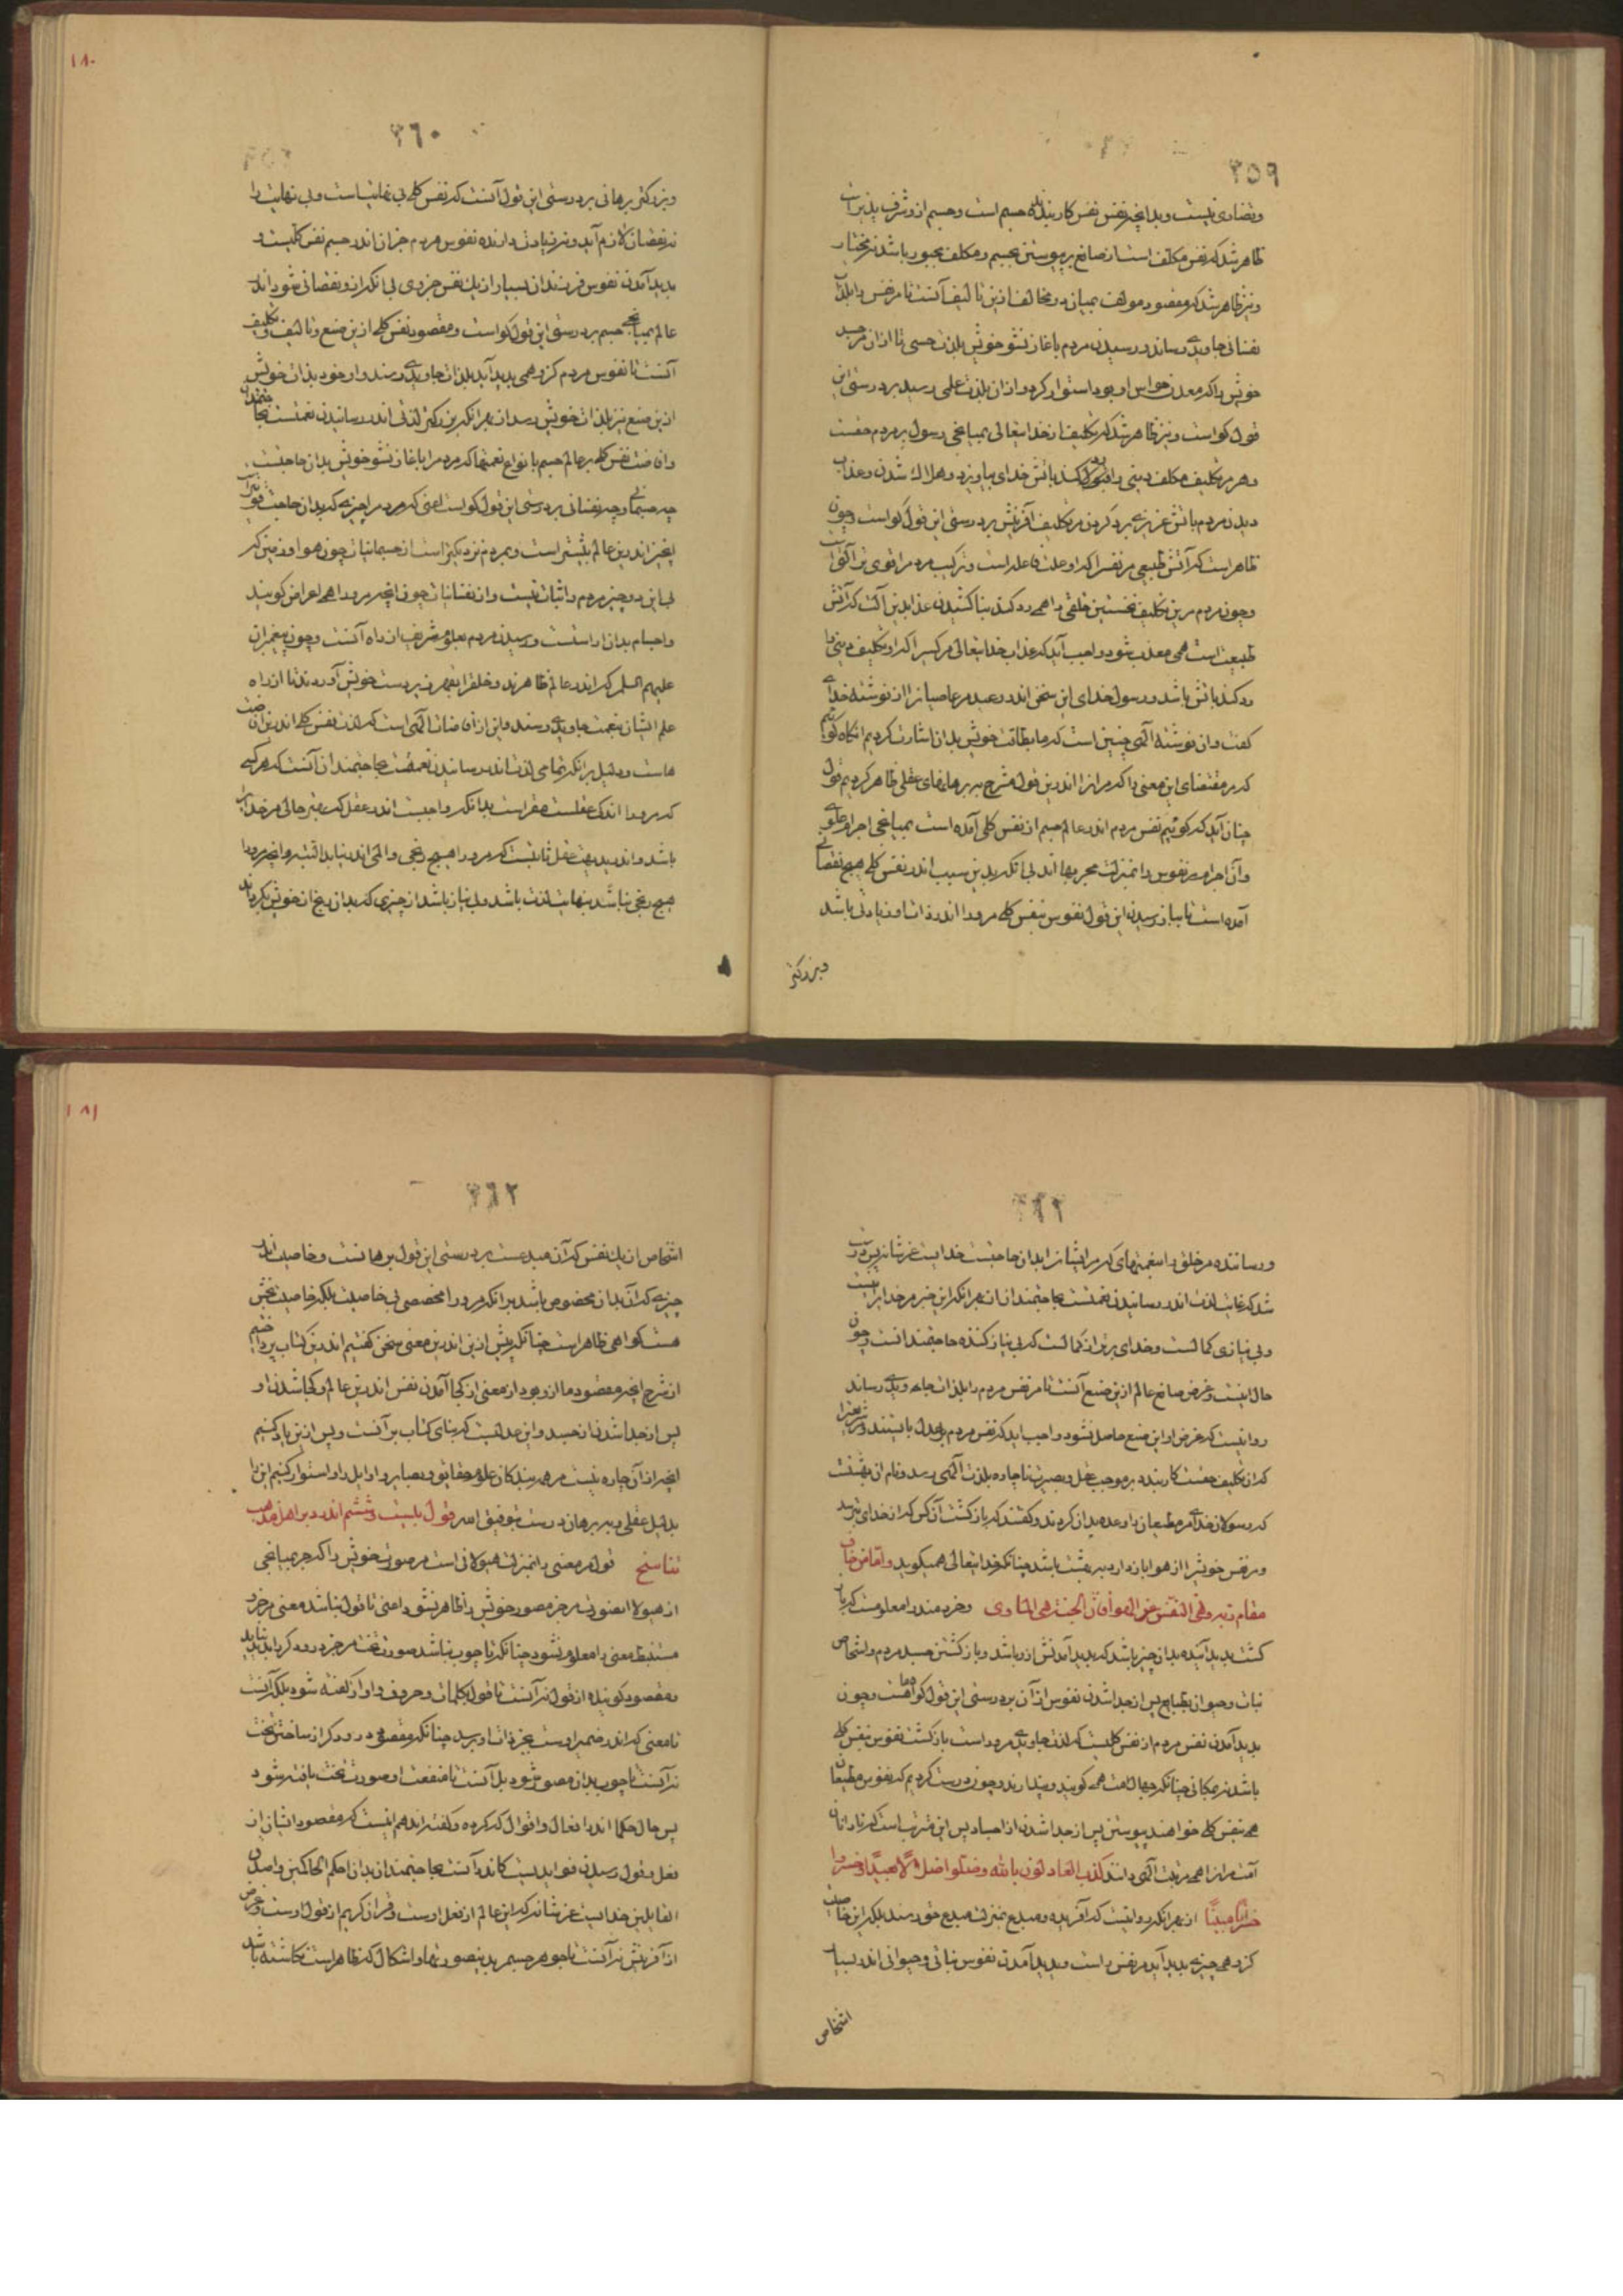 ٣٥٩
و تضادی نیست و بدانچه نفس کاربندنده جسم است و جسم ازو شرف پذیرات
ظاهر شد که نفس مکلف است از صانع بر پیوستن بجسم و مکلف مجبور باشد نه مختار
و نیز ظاهر شد که مقصود مولف بمیان دو مخالف ازین تالیف آنست تا مر نفس را بلذات
نفسانی جاویدی رساند و رسیدن مردم باغاز نشو خویش بلذت حسی تا ازان مر جسد
خویش را که معدن حواس او بود استوار کرد و ازان بلذت علمی رسید بر درستی این
قول گواست و نیز ظاهر شد که تکلیف از خدایتعالی بمیانجی رسول بر مردم حقست
و هر مر تکلیف مکلف دینی را قبول کند باتش خدای بیاویزد و هلاک شدن و عذاب
دیدن مردم باتش غریزی برد کردن مر تکلیف آفرینش بر درستی این قول گواست و چون
ظاهر است که آتش طبیعی مر نفس را که او علت فاعله است و ترکیب مردم را قوی تر آلتی است
و چون مردم مرین تکلیف نخستین خلقی را همی رد کند بناکشیدن غذا بدین آلت که آتش
طبیعت است همی معذب شود واجب آید که عذاب خدایتعالی مر کسی را که او تکلیف دینی را
رد کند باتش باشد و رسول خدای این سخن اندر وعید مر عاصیانرا از نوشته خدای
گفت و ان نوشته الهی چنین است که ما بطاقت خویش بدان اشارت کردیم انگاه گوئیم
که بر مقتضای این معنی را که مر انرا اندرین قول مشرح ببرهانهای عقلی ظاهر کردیم قول
چنان آید که گوئیم نفس مردم اندر عالم جسم از نفس کلی آمده است بمیانجی اجرام علوی
و آن اجرام مر نفوس را بمنزلت مجریها اند بی انکه بدین سبب اندر نفس کلی هیچ نقصانی
آمده است تا بباز رسیدن این قول نفوس بنفس کلی مرو را اندر ذات او زیادتی باشد
و بزرگتر
١٨٠
٣٦٠
و بزرگتر برهانی بر درستی این قول آنست که نفس کلی بی نهایتست و بی نهایت را
نه نقصان لازم آید و نه زیادت و دارنده نفوس مردم جزان اندر جسم نفس کلیست و
پدید آمدن نفوس فرزندان بسیار از یک نفس جزوی بی انکه ازو نقصانی شود اندر
عالم بمیانجی جسم بر درستی این قول گواست و مقصود نفس کلی ازین صنع و تالیف و تکلیف
آنست تا نفوس مردم کزو همی پدید آید بلذات جاویدی رسند و او خود بذات خویش
ازین صنع نیز بلذات خویش رسد از بهر انکه بزرگتر لذتی اندر رسانیدن نعمتست بحاجتمندان
و افاضت نفس کلی بر عالم جسم بانواع نعمتها که مردم را باغاز نشو خویش بدان حاجتست
چه جسمانی و چه نفسانی بر درستی این قول گواست اعنی که مردم را چیزی که بدان حاجت قوی تر است
انچیز اندرین عالم بیشتر است و بمردم نزدیکتر است از جسمانیات چون هوا و زمین که
بی این دو چیز مردم را ثبات نیست و از نفسانیات چون انچه مرو را همی اعراض گویند
و اجسام بدان اراستست و رسیدن مردم بعلوم شریف ازان راه آنست و چون پیغمبران
علیهم السلم که اندر عالم ظاهرند و خلق را بقهر زیردست خویش آوردند تا ازان راه
علم ایشان بنعمت جاویدی رسند و این از افاضات الهی است که لذت نفس کلی اندرین افاضت
هاست و دلیل بر انکه تمامی لذت اندر رسانیدن نعمتست بحاجتمندان آنست که هر کسی
که مرو را اندکی عقلست مقر است بدانکه واجبست اندر عقل که بهتر حالی مر خدایرا
باشد و اندر بدیهت عقل ثابتست که مرو را هیچ رنجی و المی اندر نیابد البته و انچه مرو را
هیچ رنجی نباشد بنهایت لذت باشد و بی نیاز باشد از چیزی که بدان رنج از خویش بگرداند
٣٦١
و رساننده مر خلق را بنعمتهای که مر ایشانرا بدان حاجتست خدایست عز شانه پس درست
شد که غایت لذت اندر رسانیدن نعمتست بحاجتمندان از بهر انکه این خبر مر خدایراست
و بی نیازی کمالست و خدای برتر از کمالست که بی نیاز کننده حاجتمندانست و چون
حال اینست و غرض صانع عالم ازین صنع آنست تا مر نفس مردم را بلذات جاویدی رساند
روا نیست که غرض او ازین صنع حاصل نشود واجب اید که نفس مردم بعدل بایستند و شریعترا
که ان تکلیف حقست کار بندد بر موجب عقل و بصیرت ناچاره بلذت الهی رسد و نام ان بهشتست
که رسولان خدای مر مطیعان را وعده بدان کردند و گفتند که بازگشت آنکس که از خدای بترسد
و مر نفس خویشرا از هوا بازدارد بهشت باشد چنانکه خدایتعالی همیگوید و اما من خاف
مقام ربه و نهی النفس عن الهوا فان الجنة هی الماوی و خردمند را معلومست که باز
گشت پدید آینده بدان چیز باشد که پدید آمدنش ازو باشد و باز گشتن جسد مردم و اشخاص
نبات و حیوان بطبایع پس از جدا شدن نفوس ازآن بر درستی این قول گواهست و چون
پدید آمدن نفس مردم از نفس کلیست که لذت جاویدی مرو راست بازگشت نفوس بنفس کلی
باشد نه مکانی چنانکه جهال امت همی گویند و پندارند و چون درست کردیم که نفوس مطیعان
همی بنفس کلی خواهند پیوستن پس از جدا شدن از اجساد پس این مرتبت است که نادانان
امت مر انرا همی مرتبت الهی دانند کذب العادلون بالله و ضلوا ضلالا بعیدا و خسروا
خسرانا مبینا از بهر انکه روا نیست که آفریده و مبدع بمنزلت مبدع خود رسد بلکه این خاصیت
کزو همی چیزی پدید آید مر نفس راست و پدید آمدن نفوس نباتی و حیوانی اندر بسیار
اشخاص
١٨١
٣٦٢
اشخاص از یک نفس که آن مبدعست بر درستی این قول برهانست و خاصیت اندر
چیزی که آن بدان مخصوص باشد برانکه مرو را مخصصی بی خاصیت بلکه خاصیت بخش
هست گواهی ظاهر است چنانکه پیش ازین اندرین معنی سخن گفتیم اندرین کتاب پرداختیم
از شرح انچه مقصود ما ازو بود از معنی از کجا آمدن نفس اندرین عالم و کجا شدن او
پس از جدا شدن از جسد و این مدلیست که بنای کتاب بر آنست و پس ازین یاد کنیم
انچه ازآن چاره نیست مر همه رسندگان علوم حقایق و بصایر و اوایل را و استوار کنیم این را
بدلیل عقلی و ببرهان درست بتوفیق الله قول بیست و ششم اندر رد بر اهل مذهب
تناسخ قول مر معنی را بمنزلت هیولائی است مر صورت خویش را که جز بمیانجی
از هیولا انصورت مر جز مصور خویش را ظاهر نشود اعنی تا قول نباشد معنی مر جز
مستنبط معنی را معلوم نشود چنانکه تا چوب نباشد صورت تخت مر جز درودگر را پدید نیاید
و مقصود گوینده از قول نه آنست تا قول بکلمات و حروف و اواز گفته شود بلکه آنست
تا معنی که اندر ضمیر اوست بجز ذات او برسد چنانکه مقصود درودگر از ساختن تخت
نه آنست تا چوب بدان مصور شود بل آنست تا منفعت او صورت تخت یافته شود
پس حال حکما اندر افعال و اقوال که کرده و گفته اند هم اینست که مقصود ایشان از
فعل و قول رسیدن فوایدیست کاندر آنست بحاجتمندان بدان و احکم الحاکمین و اصدق
القایلین خدایست عز شانه که این عالم از فعل اوست و قران کریم از قول اوست و غرض
از آفرینش نه آنست تا جوهر جسم بدین صورتها و اشکال که ظاهر است نگاشته باشد